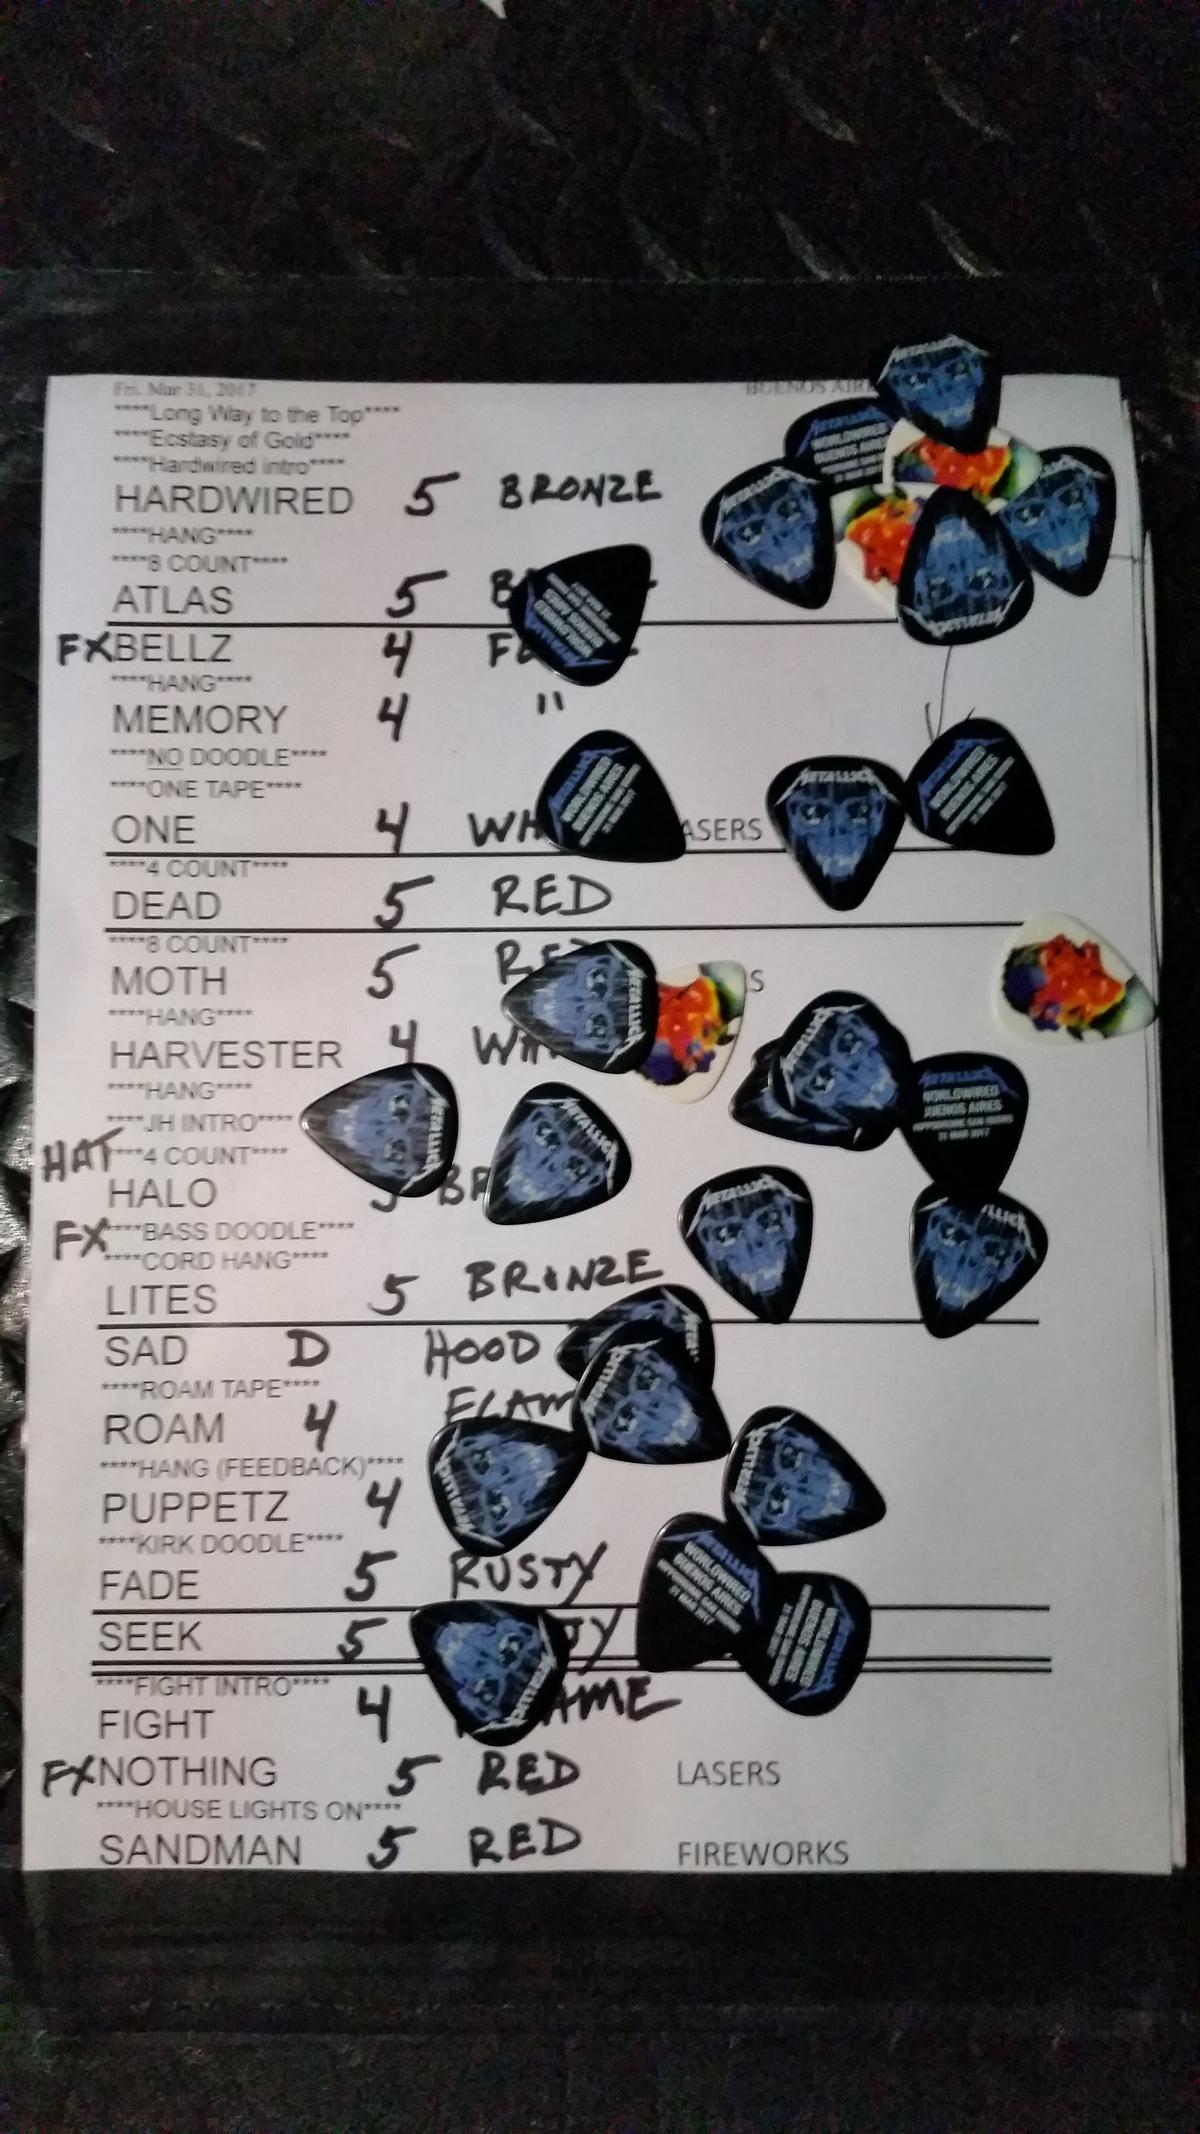 Fri. Mar 31, 2017 BUENOS
****Long Way to the Top****
****Ecstasy of Gold****
****Hardwired intro****
HARDWIRED 5 BRONZE
****HANG****
****8 COUNT****
ATLAS 5
FX BELLZ 4
****HANG****
MEMORY 4 "
****NO DOODLE****
****ONE TAPE****
ONE 4
****4 COUNT****
DEAD 5 RED
****8 COUNT****
MOTH 5
****HANG****
HARVESTER 4
****HANG****
****JH INTRO****
HAT ****4 COUNT****
HALO
FX ****BASS DOODLE****
****CORD HANG****
LITES 5 BRONZE
SAD D HOOD
****ROAM TAPE****
ROAM 4
****HANG (FEEDBACK)****
PUPPETZ 4
****KIRK DOODLE****
FADE 5 RUSTY
SEEK 5
****FIGHT INTRO****
FIGHT 4
FX NOTHING 5 RED LASERS
****HOUSE LIGHTS ON****
SANDMAN 5 RED FIREWORKS
METALLICA
METALLICA
WORLDWIRED
BUENOS AIRES
HIPODROMO SAN ISIDRO
31 MAR 2017